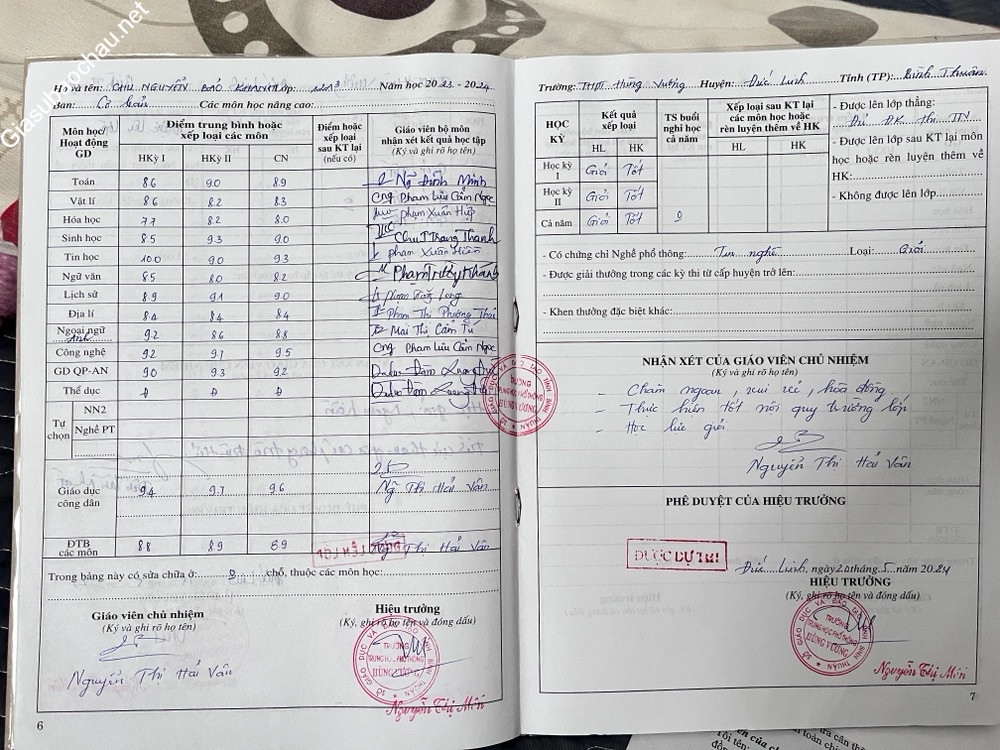 Giasuhopchau.net
Họ và tên: CHU NGUYỄN BẢO KHANH Lớp: 12A3 Năm học 2023 - 2024
Ban: Cơ bản Các môn học nâng cao:
Môn học/ Hoạt động GD
Điểm trung bình hoặc xếp loại các môn
Điểm hoặc xếp loại sau KT lại (nếu có)
Giáo viên bộ môn nhận xét kết quả học tập (Ký và ghi rõ họ tên)
HKỳ I HKỳ II CN
Toán 8.6 9.0 8.9 Ng Đình Minh
Vật lí 8.6 8.2 8.3 Cng Phạm Lưu Cẩm Ngọc
Hóa học 7.7 8.2 8.0 Phạm Xuân Hiệp
Sinh học 8.5 9.3 9.0 Chu T Trang Thanh
Tin học 10.0 9.0 9.3 Phạm Xuân Hiền
Ngữ văn 8.5 8.0 8.2
Lịch sử 8.9 9.1 9.0 Long
Địa lí 8.4 8.4 8.4 Phạm Thị Phương Thai
Ngoại ngữ Anh 9.2 8.6 8.8 Mai Thị Cẩm Tú
Công nghệ 9.2 9.7 9.5 Cng Phạm Lưu Cẩm Ngọc
GD QP-AN 9.0 9.3 9.2
Thể dục Đ Đ Đ
Tự chọn
NN2
Nghề PT
Giáo dục công dân 9.4 9.7 9.6 Ng Thị Hải Vân
ĐTB các môn 8.8 8.9 8.9 Ng Thị Hải Vân
Trong bảng này có sửa chữa ở: 0 chỗ, thuộc các môn học:
Giáo viên chủ nhiệm
(Ký và ghi rõ họ tên)
Nguyễn Thị Hải Vân
Hiệu trưởng
(Ký, ghi rõ họ tên và đóng dấu)
SỞ GIÁO DỤC VÀ ĐÀO TẠO TỈNH BÌNH THUẬN
TRƯỜNG
TRUNG HỌC PHỔ THÔNG
HÙNG VƯƠNG
Nguyễn Thị Mên
6
Trường: THPT Hùng Vương Huyện: Đức Linh Tỉnh (TP): Bình Thuận
HỌC KỲ
Kết quả xếp loại
TS buổi nghỉ học cả năm
Xếp loại sau KT lại các môn học hoặc rèn luyện thêm về HK
HL HK HL HK
Học kỳ I Giỏi Tốt
Học kỳ II Giỏi Tốt
Cả năm Giỏi Tốt 0
- Được lên lớp thẳng:
Đủ ĐK thi TN
- Được lên lớp sau KT lại môn học hoặc rèn luyện thêm về HK:
- Không được lên lớp
- Có chứng chỉ Nghề phổ thông: Tin nghề Loại: Giỏi
- Được giải thưởng trong các kỳ thi từ cấp huyện trở lên:
- Khen thưởng đặc biệt khác:
NHẬN XÉT CỦA GIÁO VIÊN CHỦ NHIỆM
(Ký và ghi rõ họ tên)
- Chăm ngoan, vui vẻ, hòa đồng
- Thực hiện tốt nội quy trường lớp
- Học lực giỏi
Nguyễn Thị Hải Vân
PHÊ DUYỆT CỦA HIỆU TRƯỞNG
ĐƯỢC DỰ THI
Đức Linh, ngày 20 tháng 5 năm 2024
HIỆU TRƯỞNG
(Ký, ghi rõ họ tên và đóng dấu)
SỞ GIÁO DỤC VÀ ĐÀO TẠO TỈNH BÌNH THUẬN
TRƯỜNG
TRUNG HỌC PHỔ THÔNG
HÙNG VƯƠNG
Nguyễn Thị Mên
7